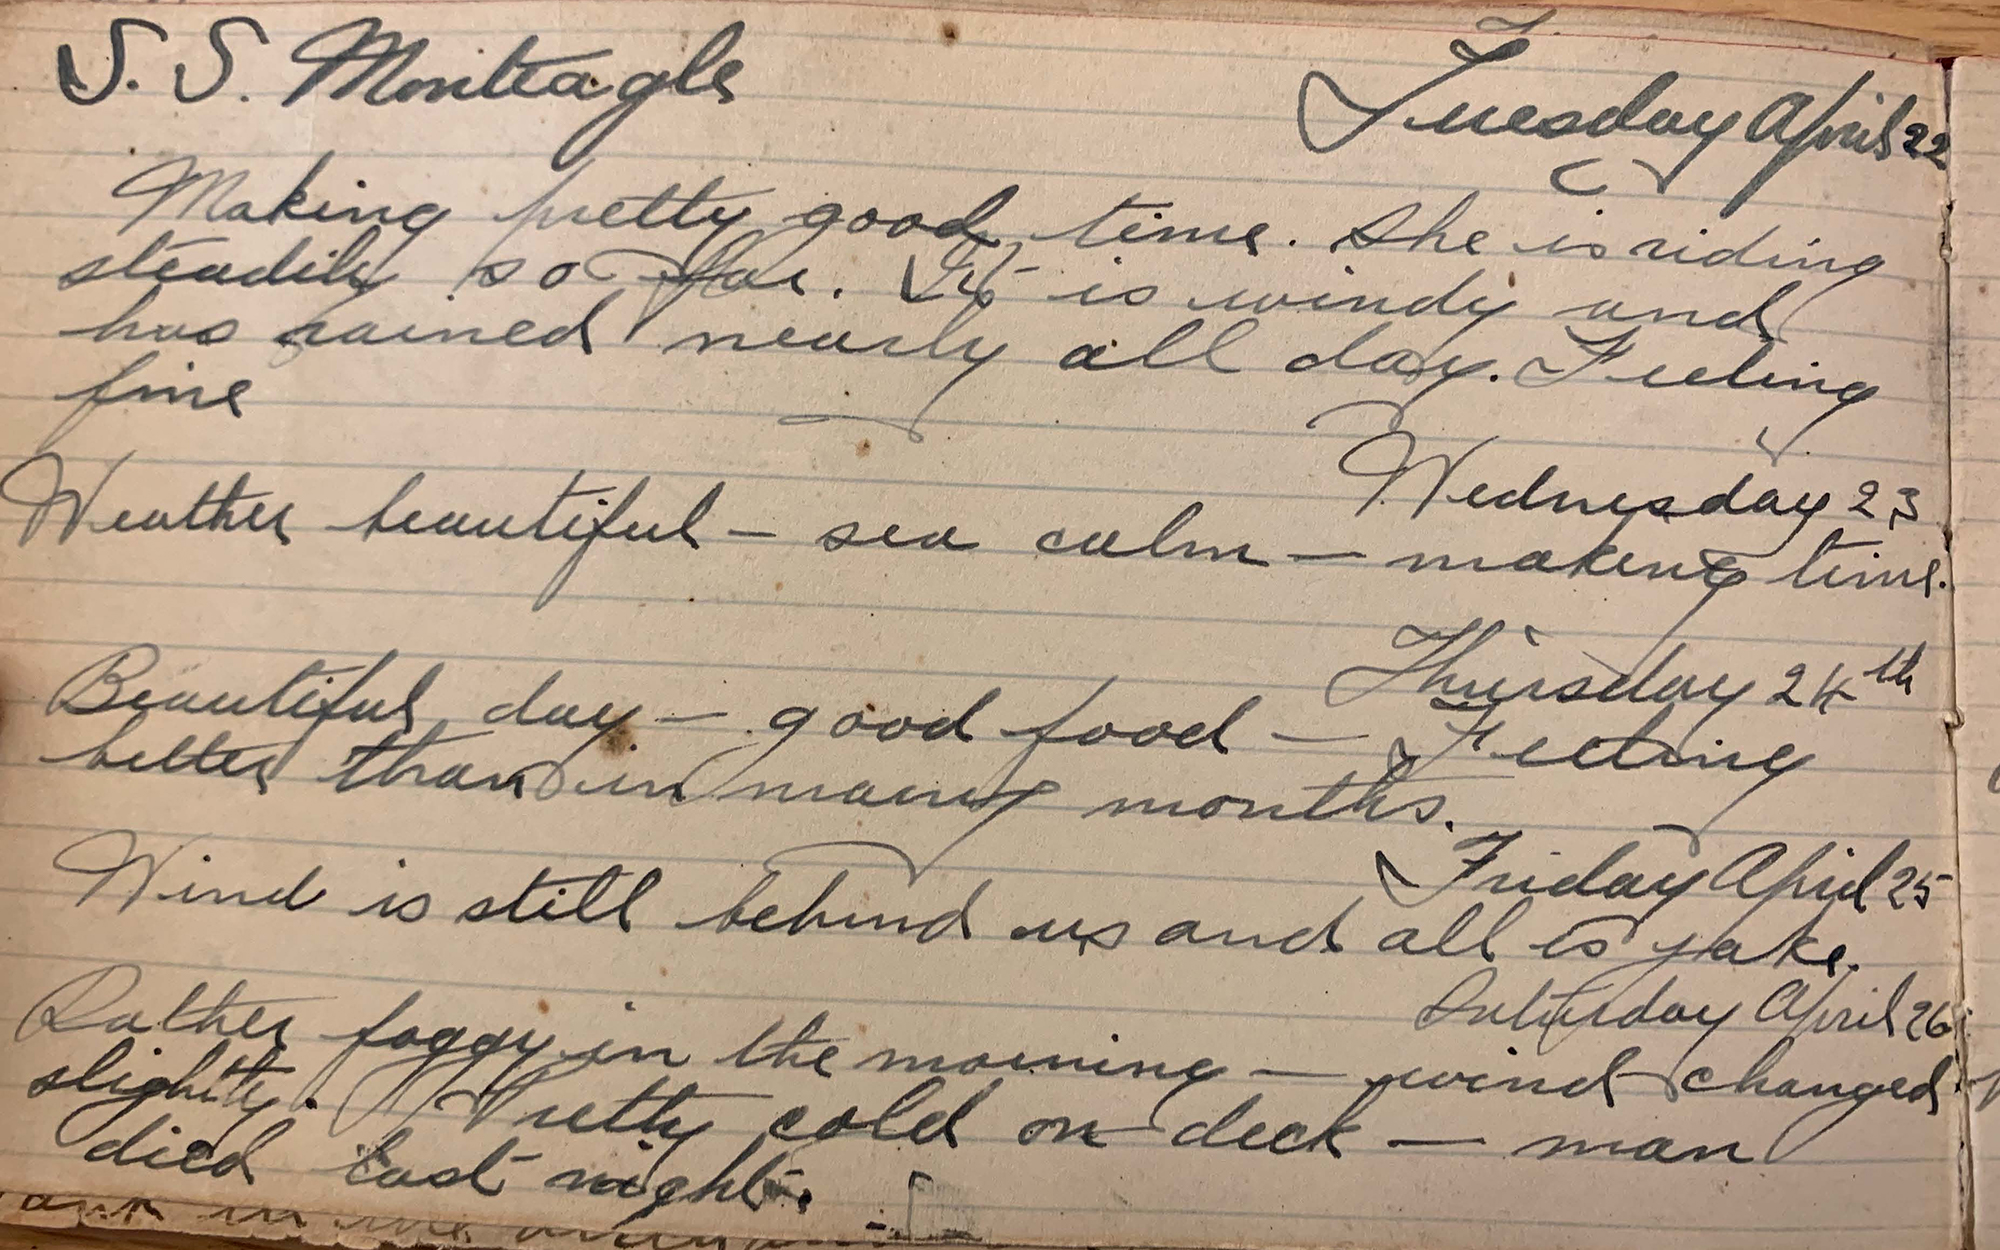 S. S. Monteagle
Tuesday April 22
Making pretty good time. She is riding
steadily so far. It is windy and
has rained nearly all day. Feeling
fine
Wednesday 23
Weather beautiful – sea calm – making time.
Thursday 24th
Beautiful day – good food – Feeling
better than in many months.
Friday April 25
Wind is still behind us and all is jake.
Saturday April 26
Rather foggy in the morning – wind changed
slightly. Pretty cold on deck – man
died last night.
in the